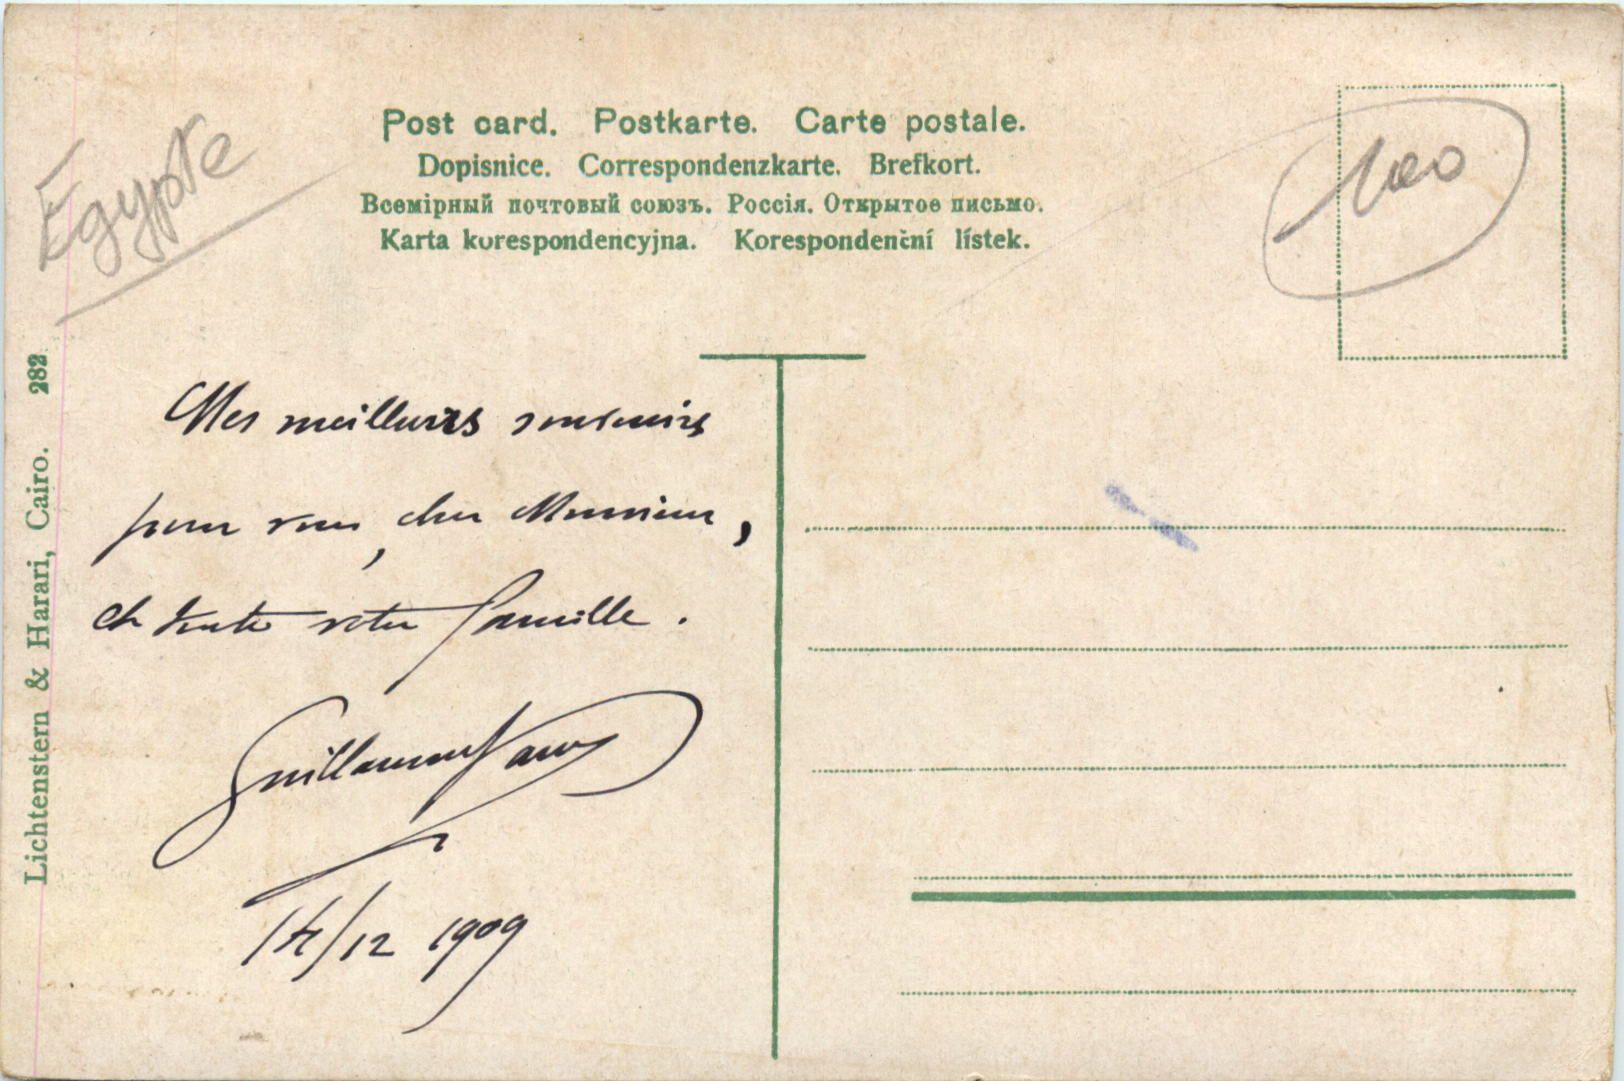 Post card. Postkarte. Carte postale.
Dopisnice. Correspondenzkarte. Brefkort.
Всемірный почтовый союзъ. Россія. Открытое письмо.
Karta korespondencyjna. Korespondenční lístek.
Egypte
100
Lichtenstern & Harari, Cairo. 282
Mes meilleurs souvenirs
pour vous, cher Monsieur,
et toute votre famille.
Guillaume
14/12 1909